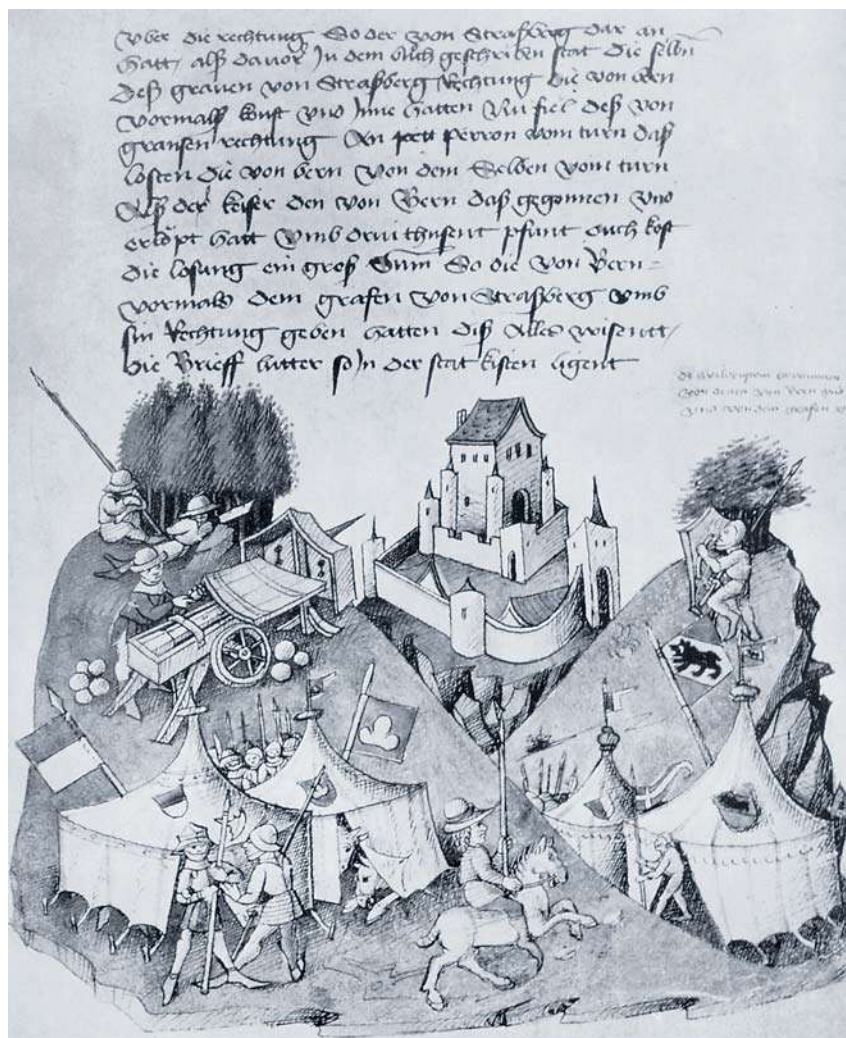 Vber die rechtung So der von Straßberg dar an
hatt / alß dauor Jn dem buch geschriben stat die selbñ
deß grauen von Straßberg Rechtung die von bern
vormalß koufft vnd Jnne hatten Nu fiel deß von
gransen rechtung An perron vom turn daß
losten die von bern von dem Selben vom turn
Alß der keiser den von Bern daß gegonnen vnd
erlopt hatt Vmb druithusent pfunt ouch kost
die losung ein groß Sum So die von Bern
vormals dem grafen von Straßberg vmb
sin Rechtung geben hatten diß Alles wisentt /
die Brieff hutter so Jn der stat kisten ligent